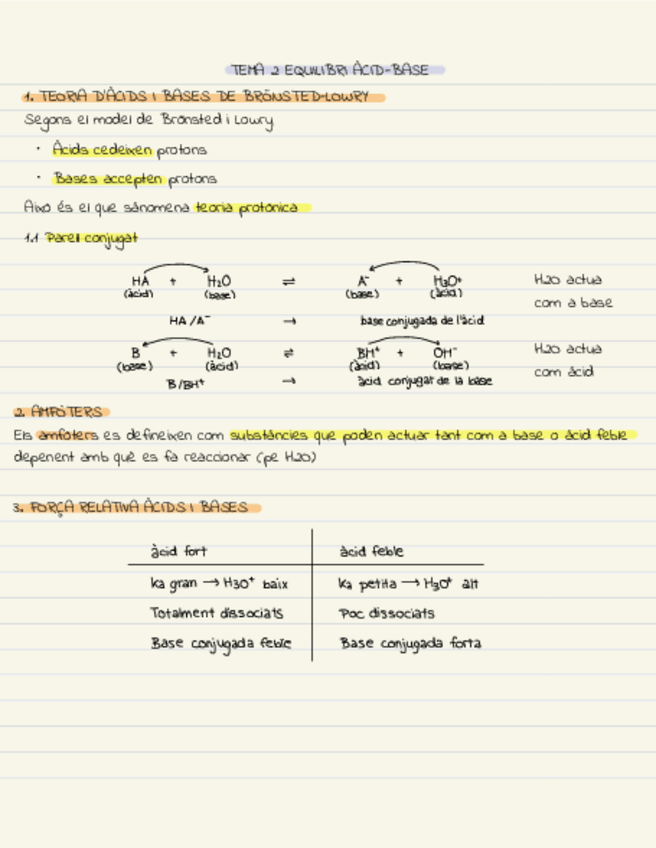 TEMA 2 EQUILIBRI ÀCID-BASE
1. TEORIA D'ÀCIDS I BASES DE BRÖNSTED-LOWRY
Segons el model de Brönsted i Lowry
· Àcids cedeixen protons
· Bases accepten protons
Això és el que s'anomena teoria protònica
1.1 Parell conjugat
HA + H2O ⇌ A⁻ + H3O⁺ H2O actua
(àcid) (base) (base) (àcid) com a base
HA/A⁻ → base conjugada de l'àcid
B + H2O ⇌ BH⁺ + OH⁻ H2O actua
(base) (àcid) (àcid) (base) com àcid
B/BH⁺ → àcid conjugat de la base
2. AMFÒTERS
Els amfòters es defineixen com substàncies que poden actuar tant com a base o àcid feble
depenent amb què es fa reaccionar (pe H2O)
3. FORÇA RELATIVA ÀCIDS I BASES
àcid fort àcid feble
Ka gran → H3O⁺ baix Ka petita → H3O⁺ alt
Totalment dissociats Poc dissociats
Base conjugada feble Base conjugada forta